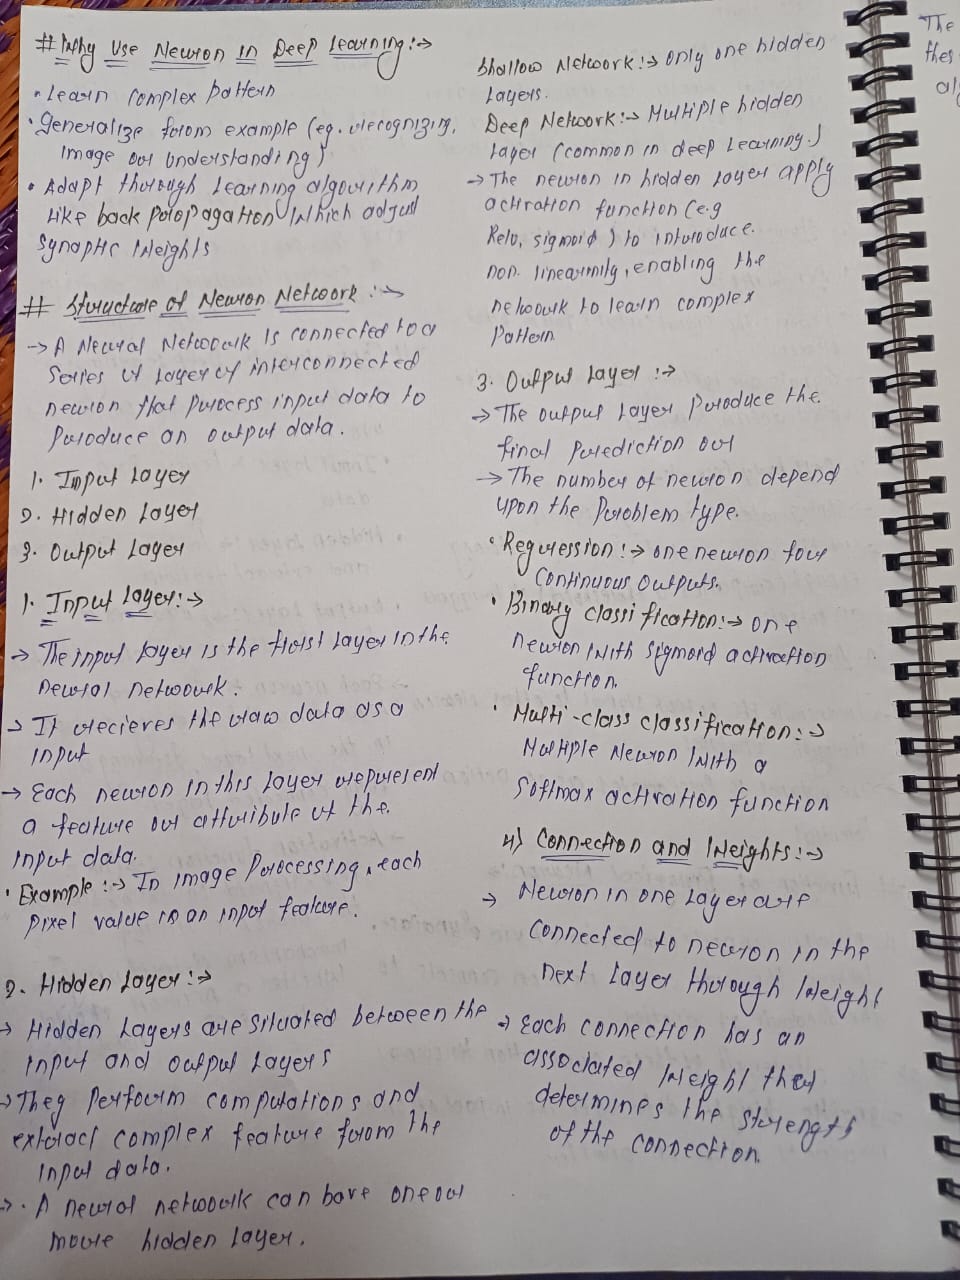 # Why Use Neuron in Deep Learning :->
• Learn Complex pattern
• Generalize from example (eg. recognizing,
Image or Understanding)
• Adapt through Learning algorithm
Like back Propagation Which adjust
Synaptic Weights
# Structure of Neuron Network :->
-> A Neural Network Is connected to a
Series of Layer of interconnected
neuron that process input data to
Produce an output data.
1. Input Layer
2. Hidden Layer
3. Output Layer
1. Input Layer :->
-> The input Layer is the first Layer in the
neural network.
-> It recieves the raw data as a
input
-> Each neuron in this Layer represent
a feature or attribute of the
input data.
• Example :-> In Image Processing, each
pixel value is an input feature.
2. Hidden Layer :->
-> Hidden Layers are Situated between the
input and output Layers
-> They Perform computations and
extract complex feature from the
input data.
-> • A neural network can have one or
more hidden Layer.
Shallow Network :-> only one hidden
Layers.
Deep Network :-> Multiple hidden
Layer (common in deep Learning.)
-> The neuron in hidden Layer apply
activation function (e.g
Relu, sigmoid ) to introduce.
non. linearmily, enabling the
network to learn complex
Pattern
3. Output Layer :->
-> The output Layer Produce the.
final Prediction or
-> The number of neuron depend
upon the Problem type.
• Regression :-> one neuron four
Continuous Outputs.
• Binary classification :-> one
neuron With Sigmoid activation
function.
• Multi-class classification :->
Multiple Neuron With a
Softmax activation function
4) Connection and Weights :->
-> Neuron in one Layer are
Connected to neuron in the
next Layer through Weight
-> Each connection has an
associated Weight that
determines the strength
of the connection.
The
thes
al